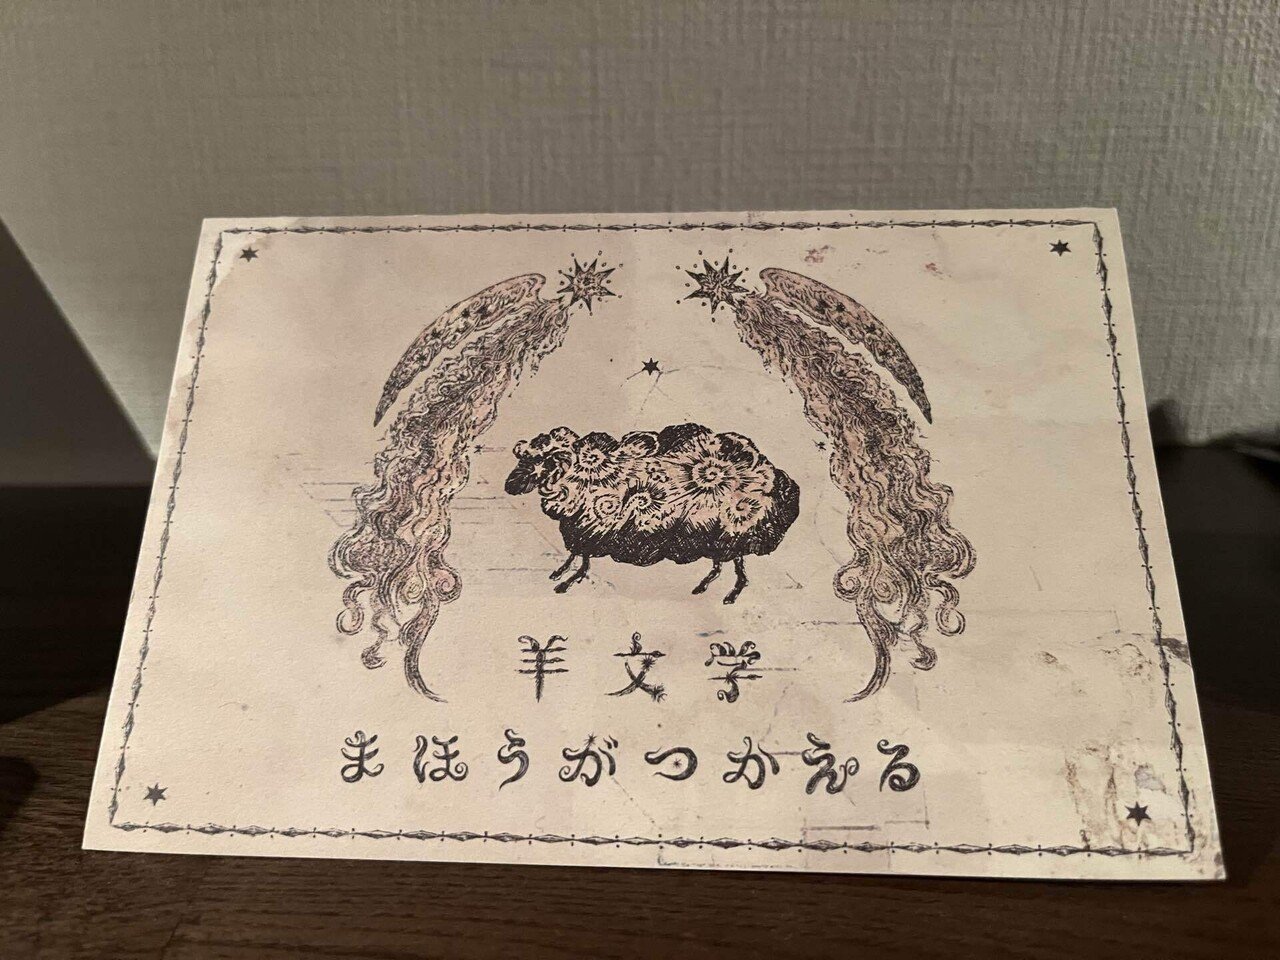 羊文学
まほうがつかえる